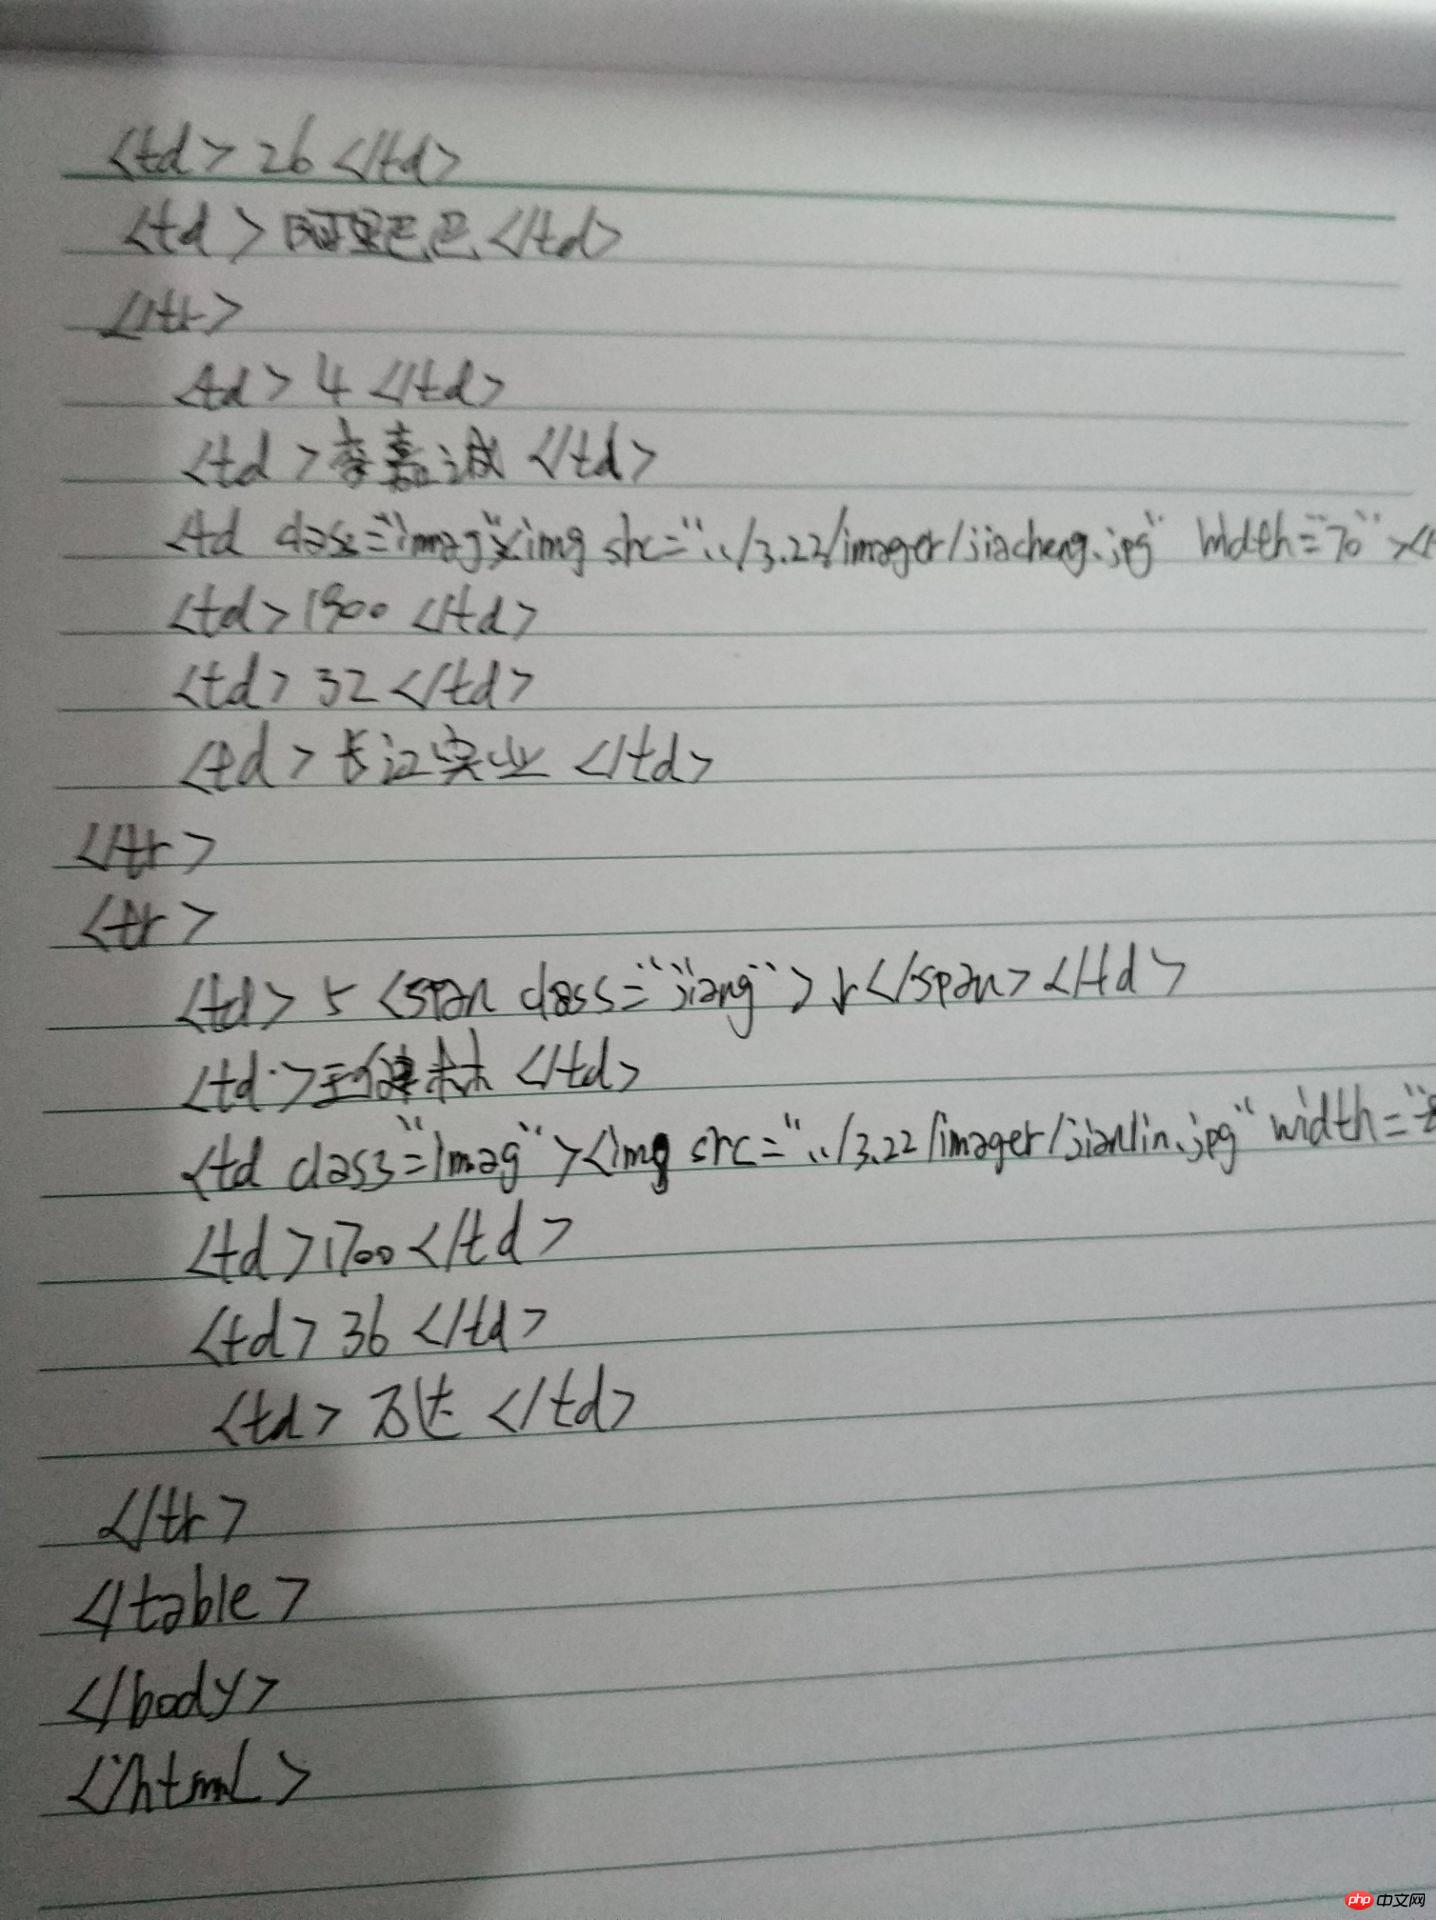 <td>26</td>
<td>阿里巴巴</td>
</tr>
<td>4</td>
<td>李嘉诚</td>
<td class="imag"><img src="../3.22/imager/jiacheng.jpg" width="70"><
<td>1900</td>
<td>32</td>
<td>长江实业</td>
</tr>
<tr>
<td>5<span class="jiang">↓</span></td>
<td>王健林</td>
<td class="imag"><img src="../3.22/imager/jianlin.jpg" width="
<td>1700</td>
<td>36</td>
<td>万达</td>
</tr>
</table>
</body>
</html>
php 中文网